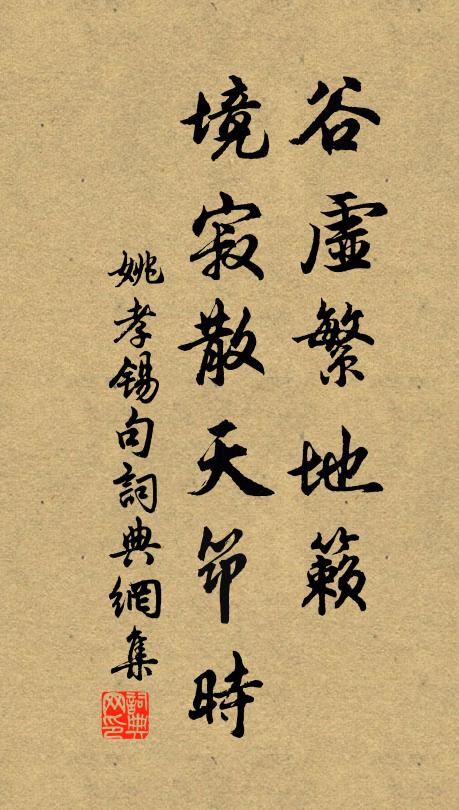 谷虛繁地籟
境寂散天節時
姚孝錫句詞典網集
詞典
网印